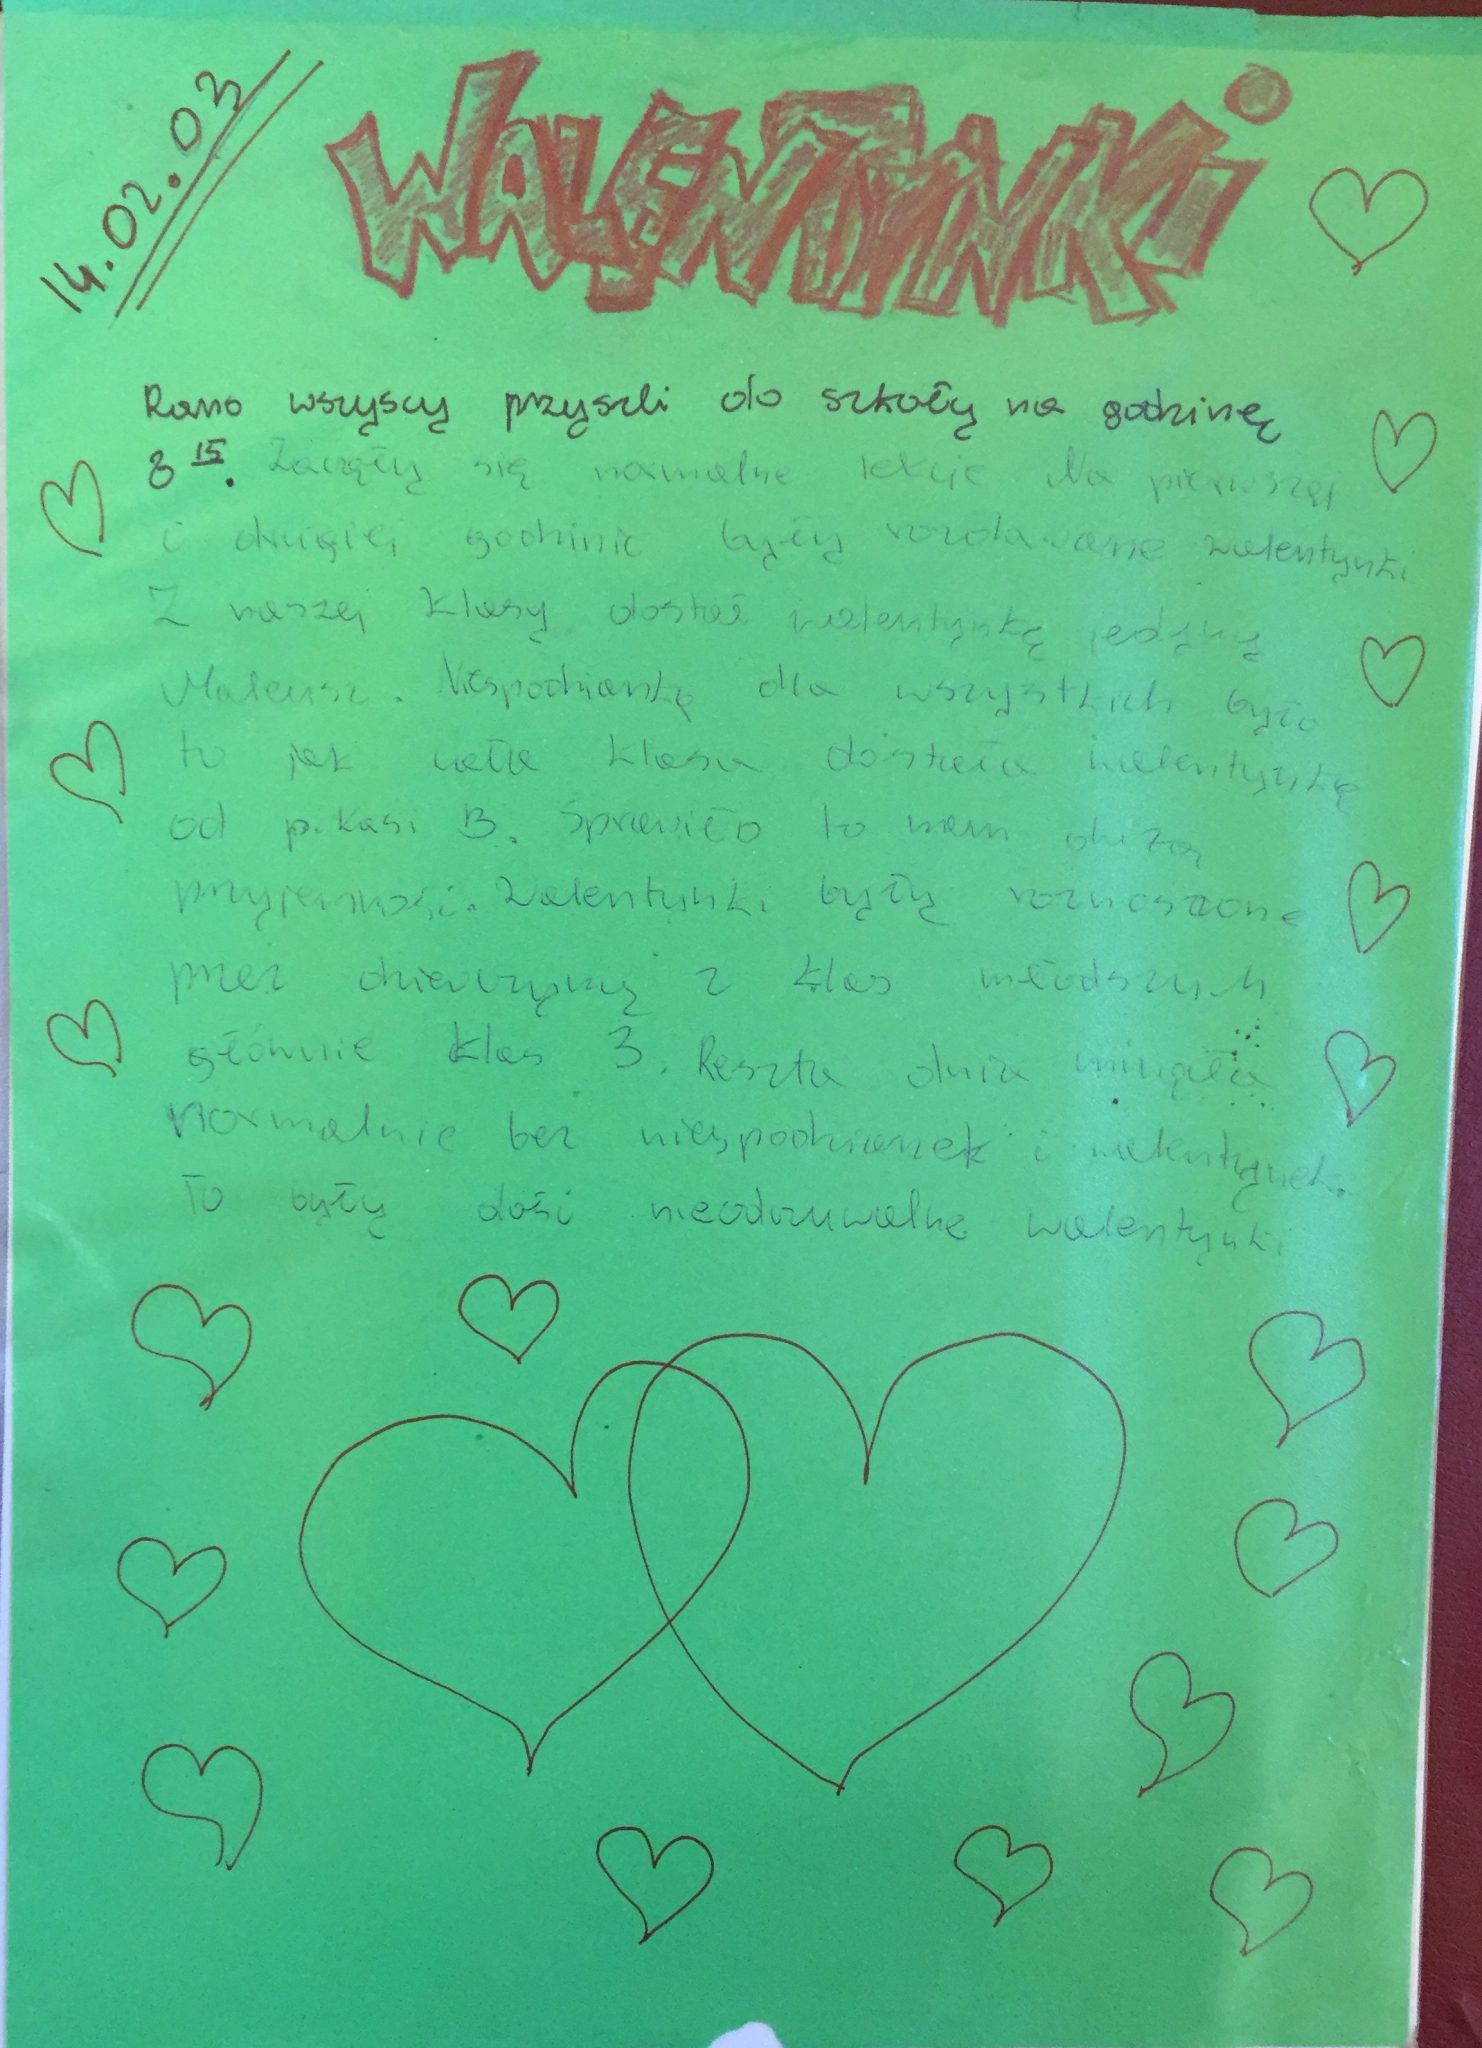 14.02.03
WALENTYNKi
Rano wszyscy przyszli do szkoły na godzinę
8 15. Zaczęły się normalne lekcje Na pierwszej
i drugiej godzinie były rozdawane walentynki
Z naszej klasy dostał walentynkę jedynię
Mateusz. Niespodzianką dla wszystkich było
to jak cała klasa dostała walentynkę
od p. Kasi B. Sprawiło to nam dużą
przyjemność. Walentynki były roznoszone
przez dziewczyny z klas młodszych
głównie klas 3. Reszta dnia minęła
normalnie bez niespodzianek i walentynek.
To były dość nieodczuwalne walentynki